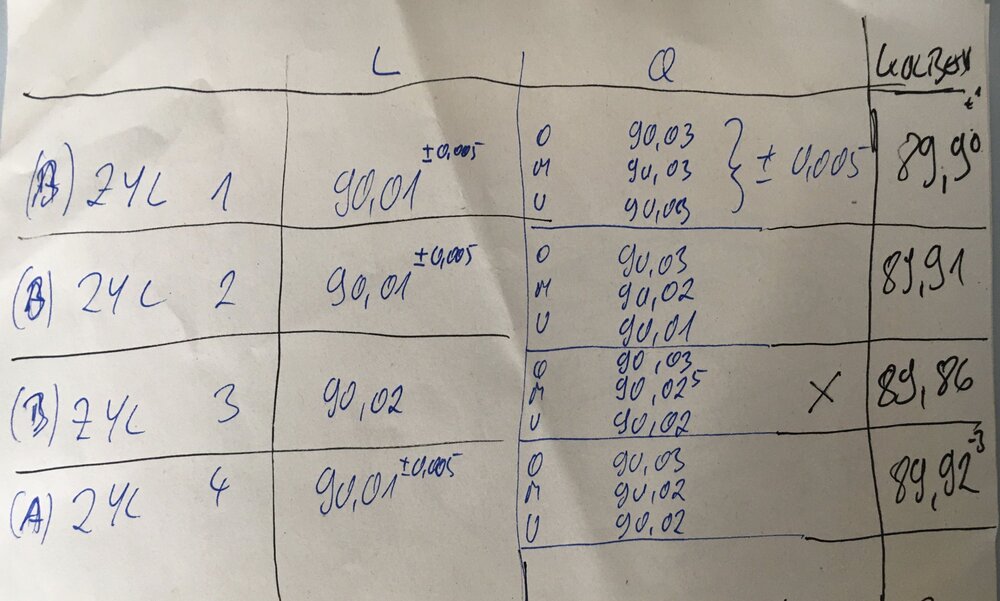 L Q KOLBEN
(B) ZYL 1 90,01 ±0,005 O 90,03 } ± 0,005 89,90
M 90,03
U 90,03
(B) ZYL 2 90,01 ±0,005 O 90,03 89,91
M 90,02
U 90,01
(B) ZYL 3 90,02 O 90,03 X 89,86
M 90,02⁵
U 90,02
(A) ZYL 4 90,01 ±0,005 O 90,03 89,92 -3
M 90,02
U 90,02